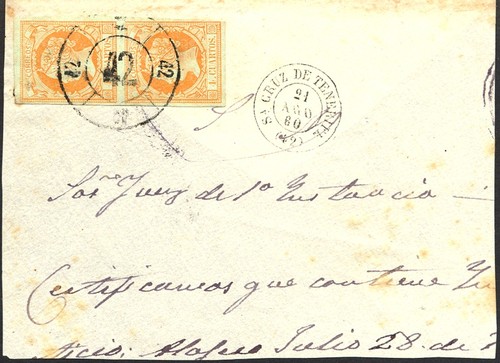 CORREOS
4 CUARTOS
42 42 42
Sª CRUZ DE TENERIFE
21
AGO
60
(49)
Sor Juez de 1ª Instancia
Certificamos que contiene
Julio 28 de